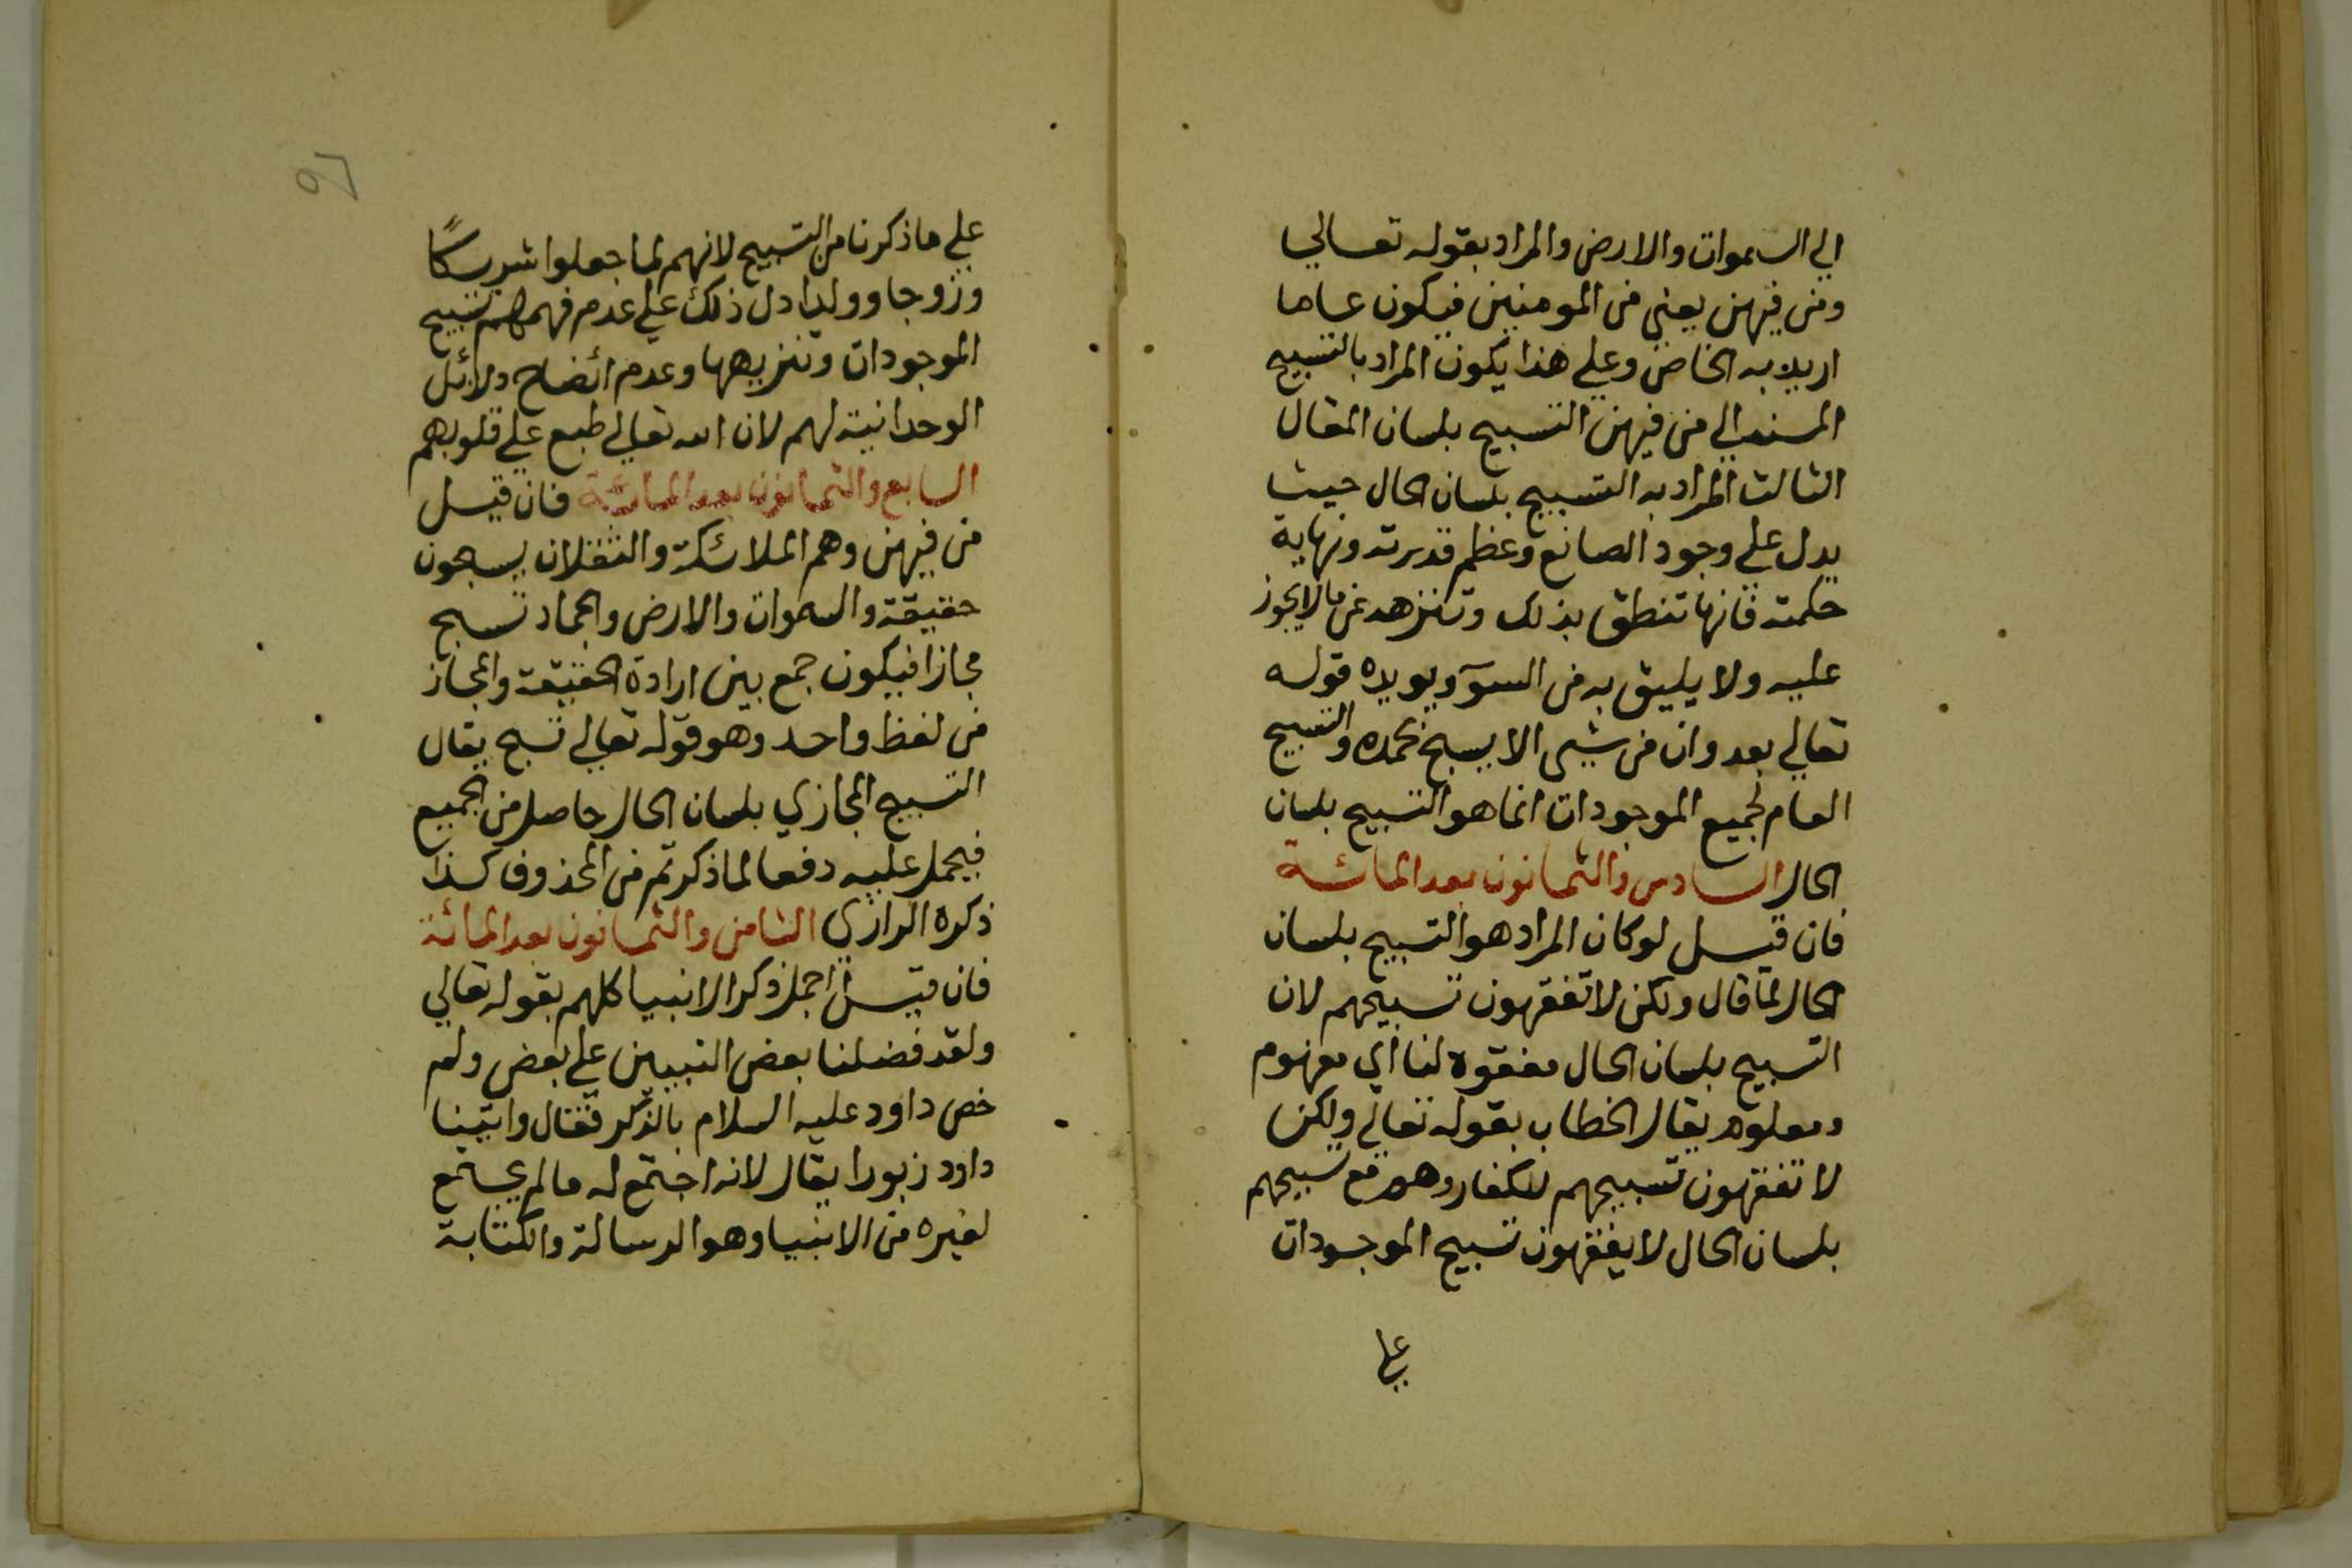 الي السموات والارض والمراد بقوله تعالي
ومن فيهن يعني من المومنين فيكون عاما
اريد به الخاص وعلي هذا يكون المراد بالتسبيح
المسند الي من فيهن التسبيح بلسان المقال
الثالث المراد به التسبيح بلسان الحال حيث
يدل علي وجود الصانع وعظم قدرته ونهاية
حكمته فانها تنطق بذلك وتنزهه عن ما لا يجوز
عليه ولا يليق به من السوٓ ويويده قوله
تعالي بعد وان من شيى الا يسبح بحمده والتسبيح
العام لجميع الموجودات انما هو التسبيح بلسان
الحال السادس والثمانون بعد المائة
فان قيل لو كان المراد هو التسبيح بلسان
الحال لما قال ولكن لا تفقهون تسبيحهم لان
التسبيح بلسان الحال مفقوه لنا اي مفهوم
ومعلوم يقال الخطاب بقوله تعالي ولكن
لا تفقهون تسبيحهم للكفار وهم مع تسبيحهم
بلسان الحال لا يفقهون تسبيح الموجودات
علي
علي ما ذكرنا من التسبيح لانهم لما جعلوا شريكًا
وزوجا وولدا دل ذلك علي عدم فهمهم تسبيح
الموجودات وتنزيهها وعدم ائضاح دلائل
الوحدانية لهم لان الله تعالي طبع علي قلوبهم
السابع والثمانون بعد المائة فان قيل
من فيهن وهم الملائكة والثقلان يسبحون
حقيقة والسموات والارض والجماد تسبح
مجازا فيكون جمع بين ارادة الحقيقة والمجاز
من لفظ واحد وهو قوله تعالي تسبح يقال
التسبيح المجازي بلسان الحال حاصل من الجميع
فيحمل عليه دفعا لما ذكرتم من المحذوف كذا
ذكره الرازي الثامن والثمانون بعد المائة
فان قيل اجمل ذكر الانبيا كلهم بقوله تعالي
ولقد فضلنا بعض النبيين علي بعض ولم
خص داود عليه السلام بالذكر فقال واتينا
داود زبورا يقال لانه اجتمع له ما لم يجتمع
لغيره من الانبيا وهو الرسالة والكتابة